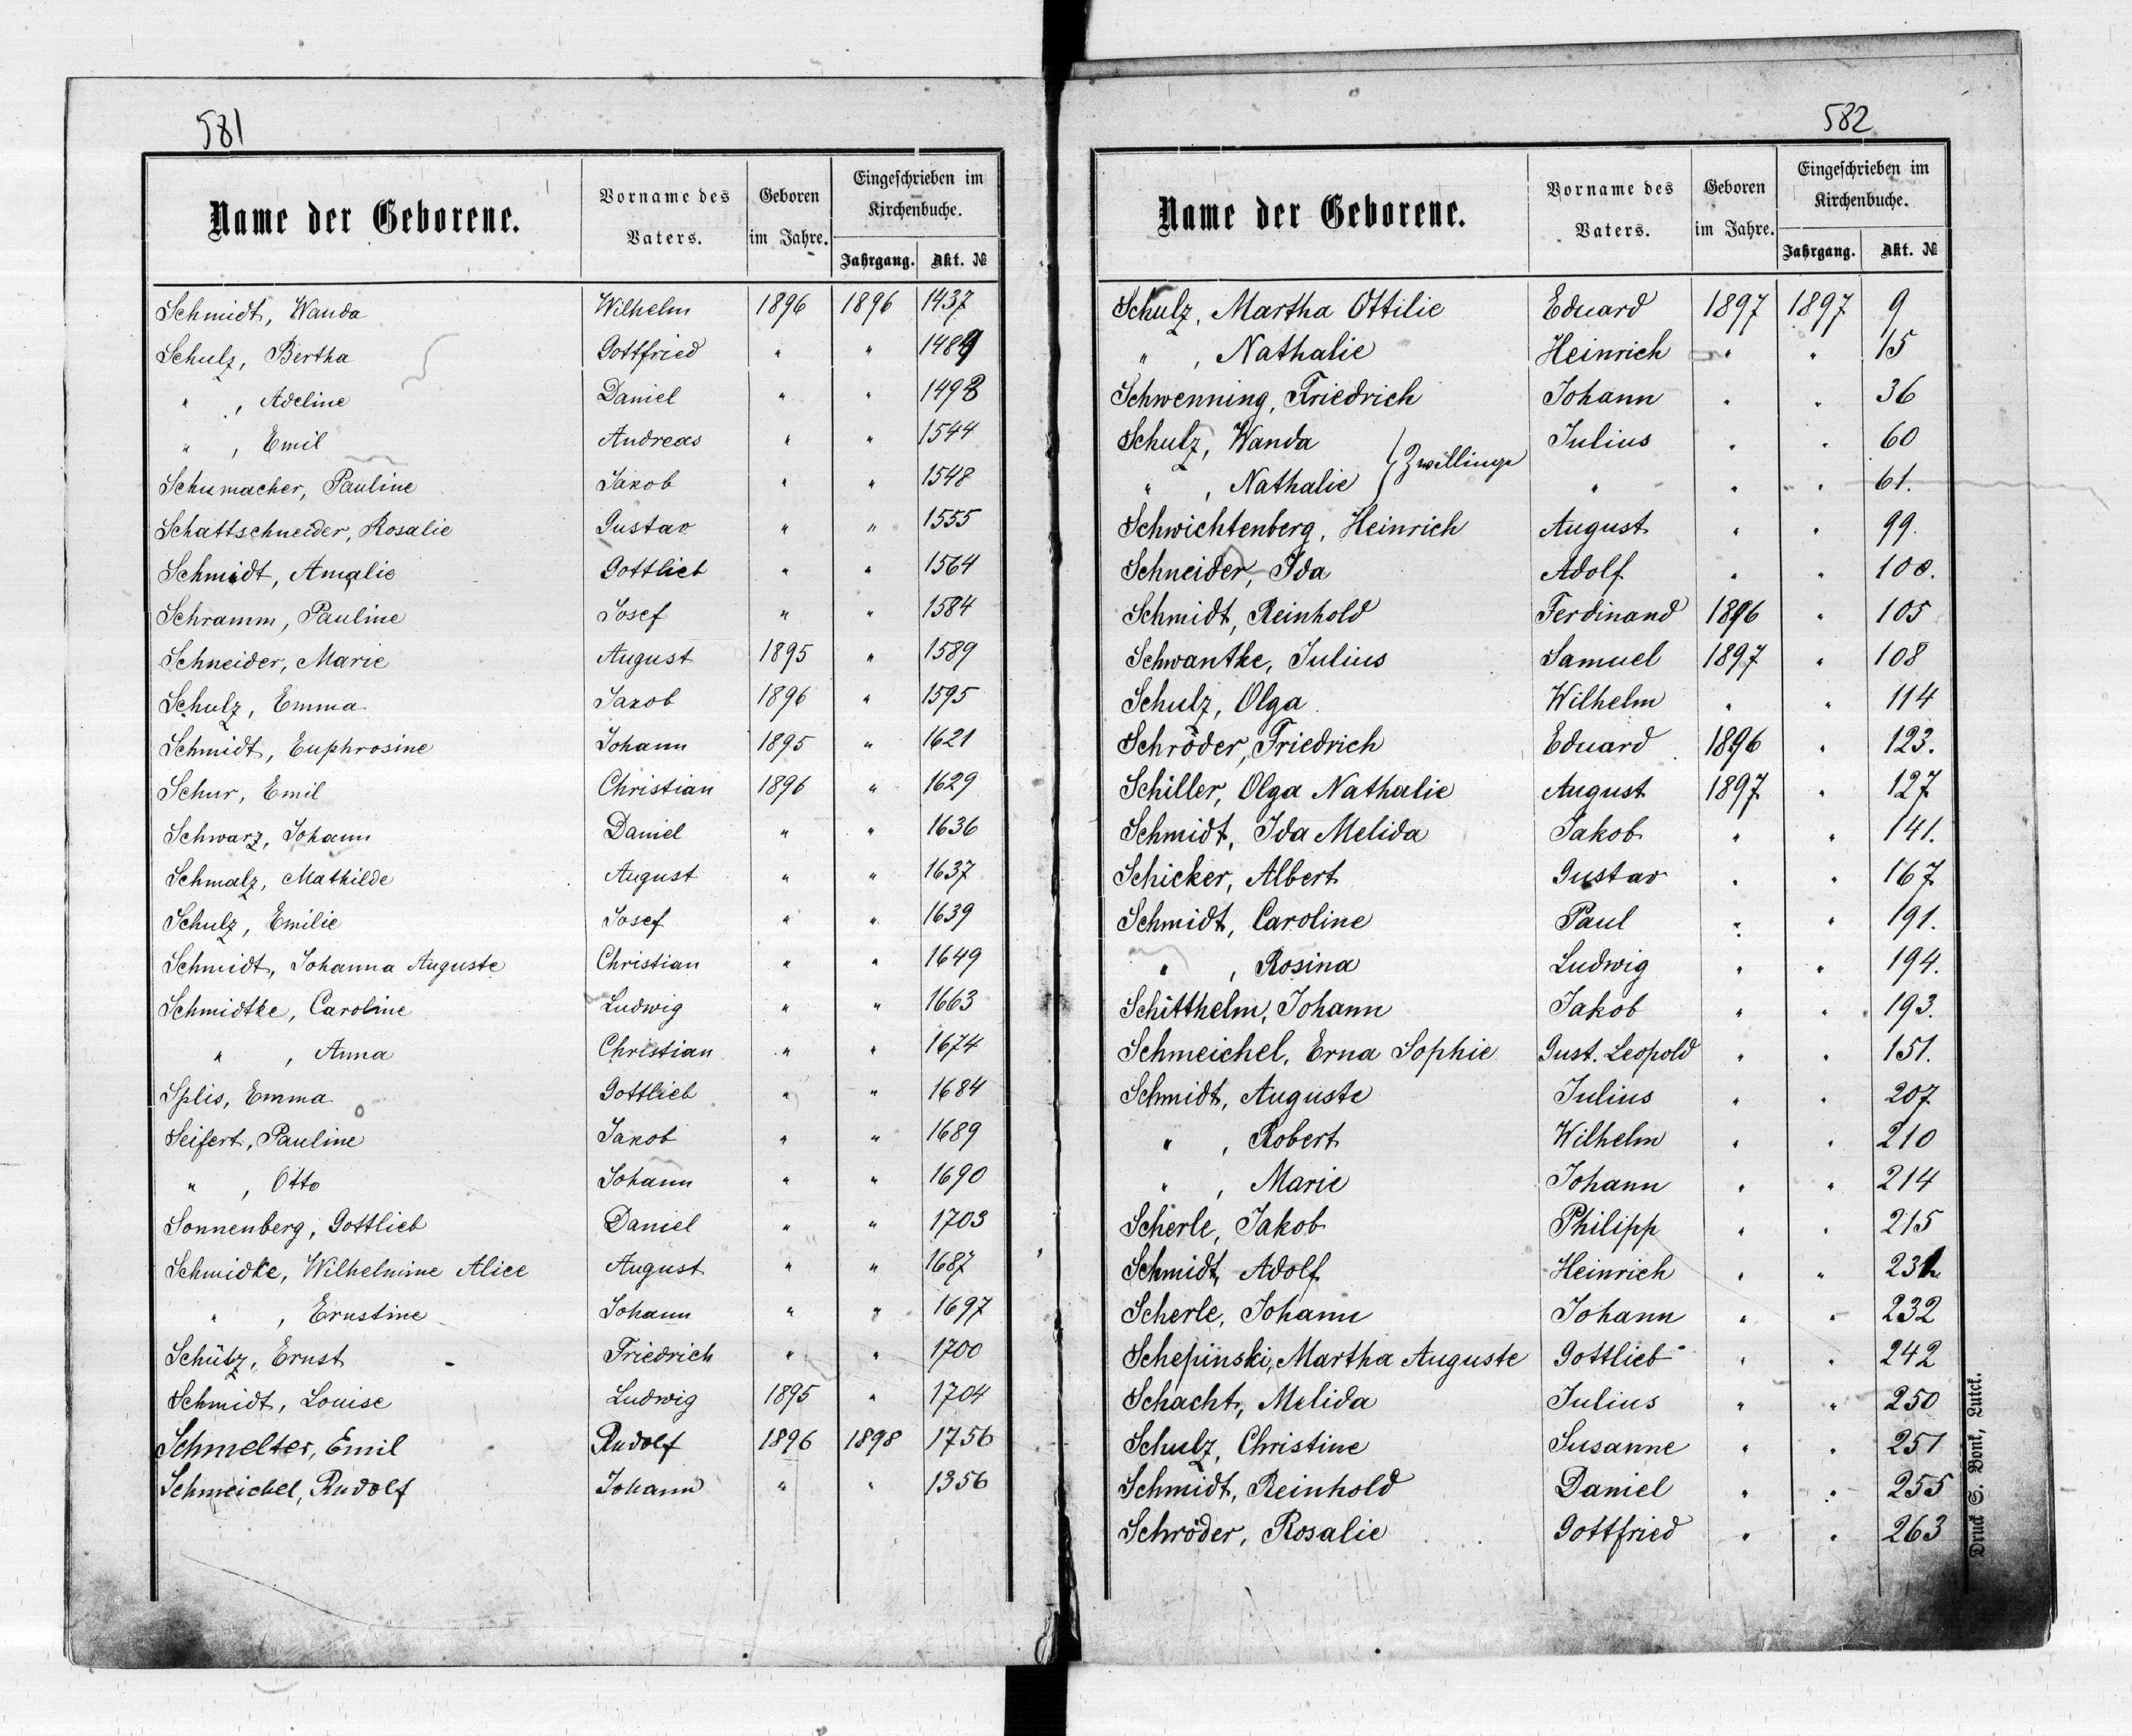 581
Name der Geborene. Vorname des Vaters. Geboren im Jahre. Eingeschrieben im Kirchenbuche. Jahrgang. Akt. №
Schmidt, Wanda Wilhelm 1896 1896 1437
Schulz, Bertha Gottfried " " 1489
" , Adeline Daniel " " 1498
" , Emil Andreas " " 1544
Schumacher, Pauline Jakob " " 1548
Schattschneider, Rosalie Gustav " " 1555
Schmidt, Amalie Gottlieb " " 1564
Schramm, Pauline Josef " " 1584
Schneider, Marie August 1895 " 1589
Schulz, Emma Jakob 1896 " 1595
Schmidt, Euphrosine Johann 1895 " 1621
Schur, Emil Christian 1896 " 1629
Schwarz, Johann Daniel " " 1636
Schmalz, Mathilde August " " 1637
Schulz, Emilie Josef " " 1639
Schmidt, Johanna Auguste Christian " " 1649
Schmidtke, Caroline Ludwig " " 1663
" , Anna Christian " " 1674
Splis, Emma Gottlieb " " 1684
Seifert, Pauline Jakob " " 1689
" , Otto Johann " " 1690
Sonnenberg, Gottlieb Daniel " " 1703
Schmidke, Wilhelmine Alice August " " 1687
" , Ernstine Johann " " 1697
Schütz, Ernst Friedrich " " 1700
Schmidt, Louise Ludwig 1895 " 1704
Schmelter, Emil Rudolf 1896 1898 1756
Schmeichel, Rudolf Johann " " 1356
582
Name der Geborene. Vorname des Vaters. Geboren im Jahre. Eingeschrieben im Kirchenbuche. Jahrgang. Akt. №
Schulz, Martha Ottilie Eduard 1897 1897 9
" , Nathalie Heinrich " " 15
Schwenning, Friedrich Johann " " 36
Schulz, Wanda } Zwillinge Julius " " 60
" , Nathalie " " " 61.
Schwichtenberg, Heinrich August " " 99.
Schneider, Ida Adolf " " 100.
Schmidt, Reinhold Ferdinand 1896 " 105
Schwantke, Julius Samuel 1897 " 108
Schulz, Olga Wilhelm " " 114
Schröder, Friedrich Eduard 1896 " 123.
Schiller, Olga Nathalie August 1897 " 127
Schmidt, Ida Melida Jakob " " 141.
Schicker, Albert Gustav " " 167
Schmidt, Caroline Paul " " 191.
" , Rosina Ludwig " " 194.
Schitthelm, Johann Jakob " " 193.
Schmeichel, Erna Sophie Gust. Leopold " " 151.
Schmidt, Auguste Julius " " 207
" , Robert Wilhelm " " 210
" , Marie Johann " " 214
Scherle, Jakob Philipp " " 215
Schmidt, Adolf Heinrich " " 231
Scherle, Johann Johann " " 232
Schepinski, Martha Auguste Gottlieb " " 242
Schacht, Melida Julius " " 250
Schulz, Christine Susanne " " 251
Schmidt, Reinhold Daniel " " 255
Schröder, Rosalie Gottfried " " 263
Druck S. Bonk, Lutck.